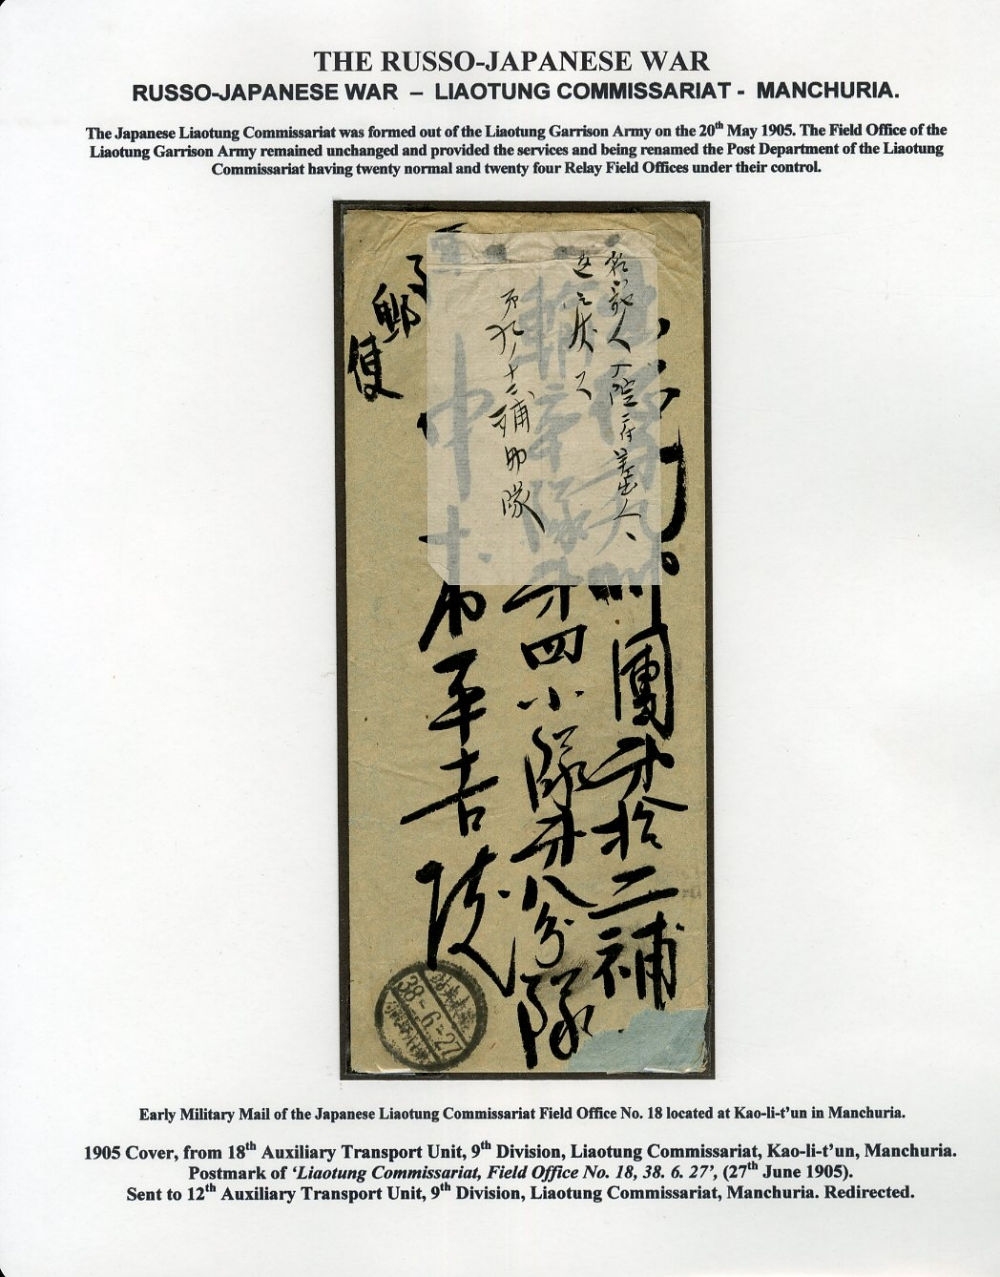 THE RUSSO-JAPANESE WAR
RUSSO-JAPANESE WAR – LIAOTUNG COMMISSARIAT - MANCHURIA.
The Japanese Liaotung Commissariat was formed out of the Liaotung Garrison Army on the 20th May 1905. The Field Office of the
Liaotung Garrison Army remained unchanged and provided the services and being renamed the Post Department of the Liaotung
Commissariat having twenty normal and twenty four Relay Field Offices under their control.
團第拾二補
輸卒隊第四小隊第八分隊
郵便
補助隊
38-6-27
Early Military Mail of the Japanese Liaotung Commissariat Field Office No. 18 located at Kao-li-t'un in Manchuria.
1905 Cover, from 18th Auxiliary Transport Unit, 9th Division, Liaotung Commissariat, Kao-li-t'un, Manchuria.
Postmark of 'Liaotung Commissariat, Field Office No. 18, 38. 6. 27', (27th June 1905).
Sent to 12th Auxiliary Transport Unit, 9th Division, Liaotung Commissariat, Manchuria. Redirected.